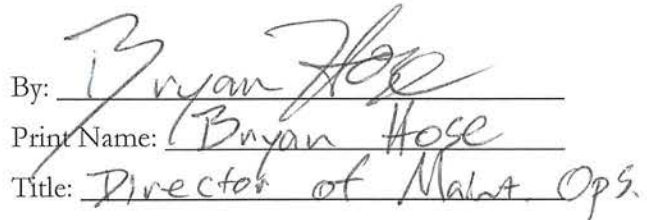 By: Bryan Hose
Print Name: Bryan Hose
Title: Director of Maint. Ops.